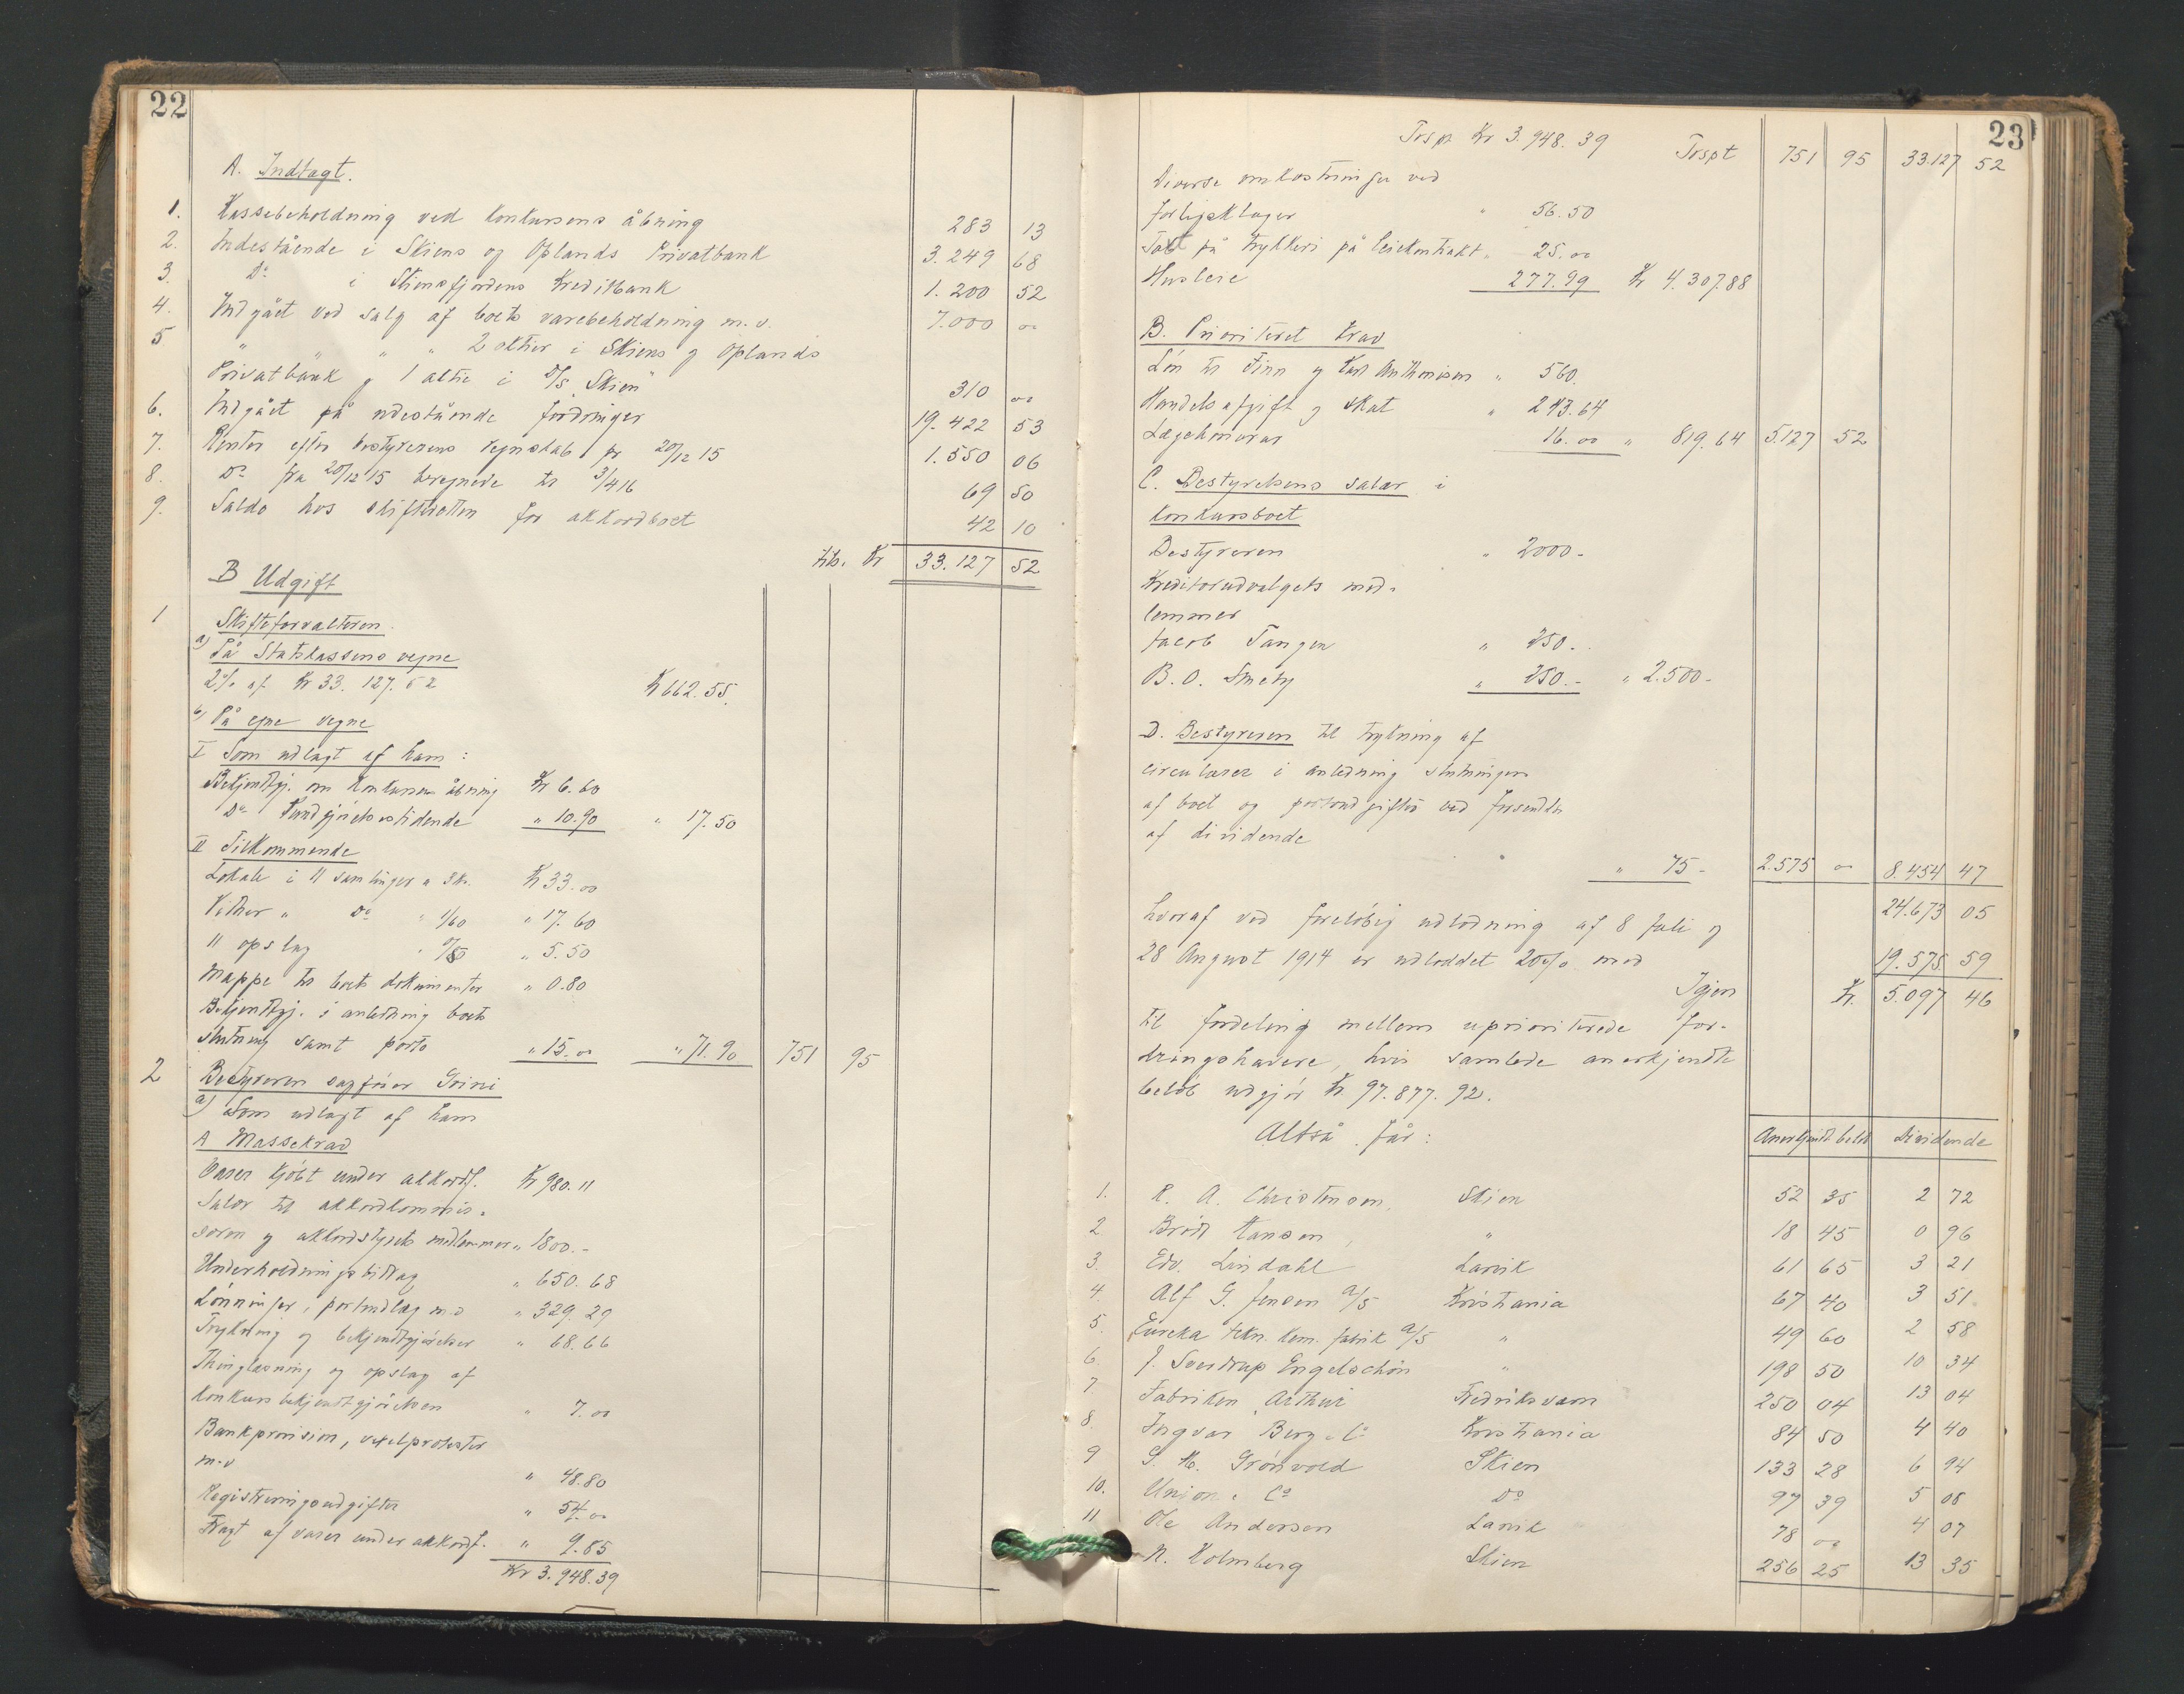 22
A. Indtægt.
1. Kassebeholdning ved konkursens åbning 283 13
2. Indestående i Skiens og Oplands Privatbank 3.249 68
3. Do i Skiensfjordens Kreditbank 1.200 52
4. Indgået ved salg af boets varebeholdning m.v. 7.000 00
5 " " " " 2 aktier i Skiens og Oplands
Privatbank og 1 aktie i D/S "Skien" 310 00
6. Indgået på udestående fordringer 19.422 53
7. Renter efter bestyrerens regnskab pr 20/12 15 1.550 06
8. Do fra 20/12 15 beregnede til 3/4 16 69 50
9. Saldo hos skifteretten for akkordboet 42 10
tils. Kr 33.127 52
B Udgift
1 Skifteforvalteren.
a) På Statskassens vegne
2% af Kr 33.127.52 Kr 662.55.
b) På egne vegne
I Som udlagt af ham:
Bekjendtgj. om konkursens åbning Kr 6.60
Do Kundgjörelsestidende " 10.90 " 17.50
II Tilkommende
Lokale i 11 samlinger a 3 kr. Kr 33.00
Vidner " Do " 1/60 " 17.60
11 opslag " 0/50 " 5.50
Mappe til boets dokumenter " 0.80
Bekjendtgj. i anledning boets
slutning samt porto " 15.00 " 71.90 751 95
2 Bestyreren sagförer Grini
a) Som udlagt af ham
A Massekrav
Varer kjöbt under akkordf. Kr 980.11
Salær til akkordkommis-
særen og akkordstyrets medlemmer " 1800.-
Underholdningsbidrag " 650.68
Lönninger, portoudlæg m.v " 329.29
Trykning og bekjendtgjörelser " 68.66
Thinglæsning og opslag af
konkursbekjendtgjörelsen " 7.00
Bankprovision, vexelprotester
m.v " 48.80
Registreringsudgifter " 54.00
Fragt af varer under akkordf. " 9.85
Kr 3.948.39
23
Trspt Kr 3.948.39 Trspt 751 95 33.127 52
Diverse omkostninger ved
forligsklager " 56.50
Tabt på trykkeri på leiekontrakt " 25.00
Husleie 277.99 Kr 4.307.88
B. Prioriteret krav
Lön til Finn og Karl Anthonisen " 560.
Handelsafgift og skat " 243.64
Lægehonorar 16.00 " 819.64 5.127 52
C. Bestyrelsens salær i
konkursboet
Bestyreren " 2000-
Kreditorudvalgets med-
lemmer
Jacob Tangen " 250.-
B. O. Smeby " 250.- " 2.500-
D. Bestyreren til trykning af
circulærer i anledning slutningen
af boet og portoudgifter ved forsendelse
af dividende
" 75- 2.575 00 8.454 47
24.673 05
hvoraf ved foreløbig udlodning af 8 Juli og
28 August 1914 er udloddet 20% med 19.575 59
Igjen Kr. 5.097 46
til fordeling mellem uprioriterede for-
dringshavere, hvis samlede anerkjendte
beløb udgjör Kr. 97.877.92.
Altså får:
Anerkjendt beløb Dividende
1. R. A. Christensen, Skien 52 35 2 72
2 Brödr. Hansen, " 18 45 0 96
3. Edv. Lindahl Larvik 61 65 3 21
4. Alf G. Jensen A/S Kristiania 67 40 3 51
5. Eureka tekn. kem. fabrik A/S " 49 60 2 58
6. J. Sverdrup Engelschön " 198 50 10 34
7 Fabriken "Arthur" Fredriksværn 250 04 13 04
8. Ingvar Berg & Co Kristiania 84 50 4 40
9 S. H. Grönvold Skien 133 28 6 94
10. Union & Co Do 97 39 5 08
11 Ole Andersen Larvik 78 00 4 07
N. Holmberg Skien 256 25 13 35